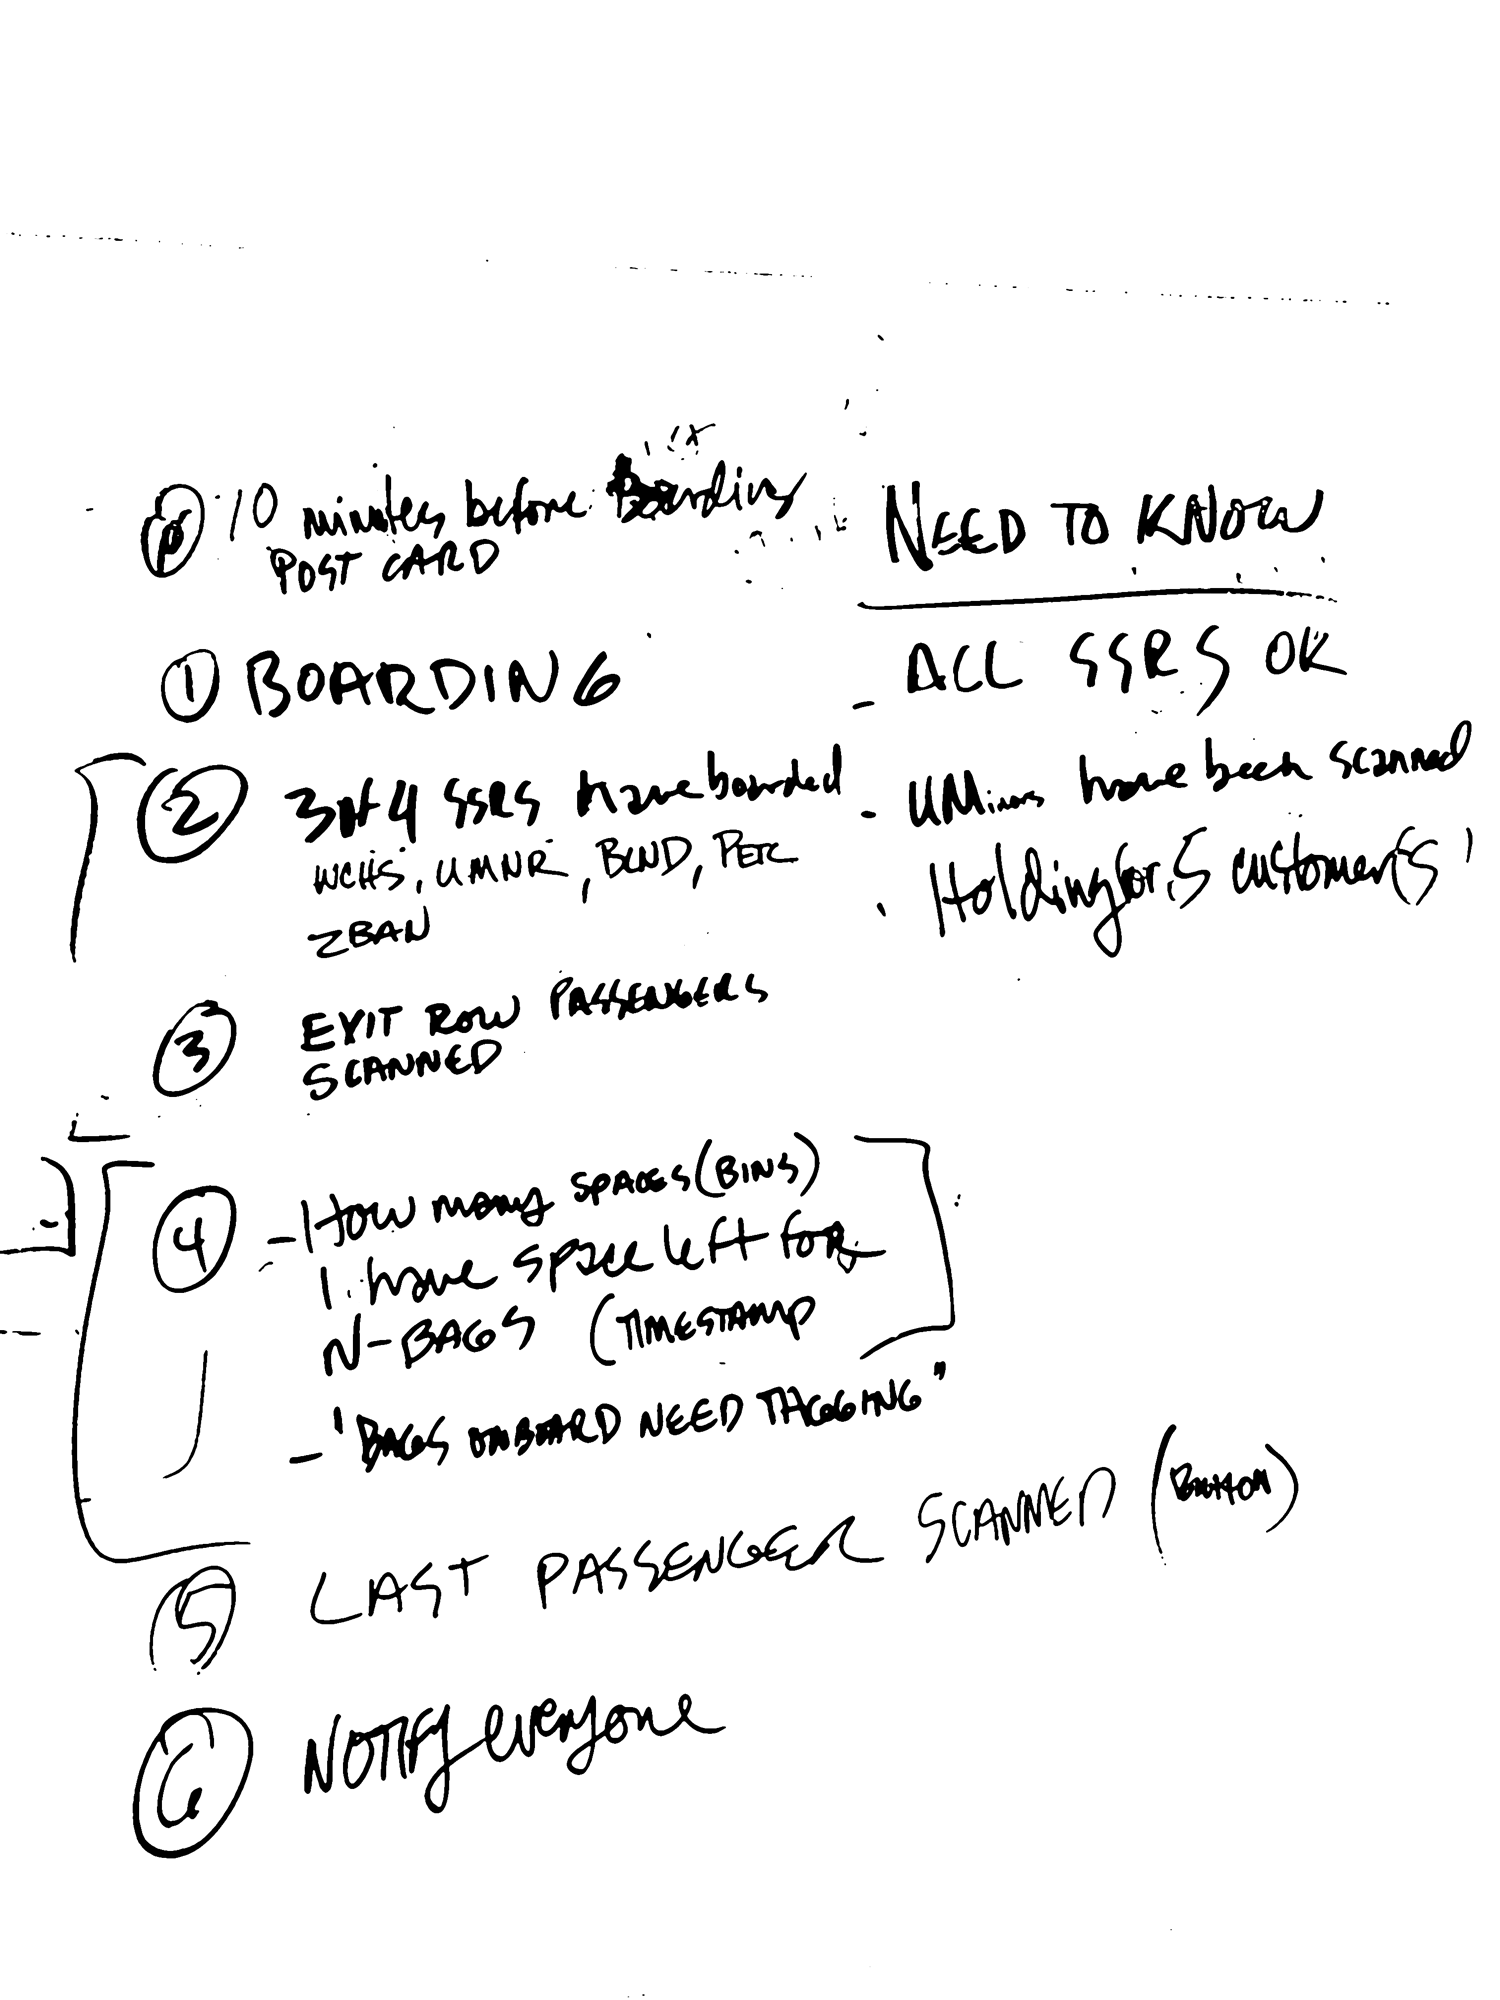 10 minutes before Boarding
POST CARD
1 BOARDING
2 3 of 4 SSRS have boarded
WCHS, UMNR, BLND, PETC
ZBAN
3 EXIT ROW PASSENGERS
SCANNED
4 - How many SPACES (BINS)
I have space left for
N-BAGS (TIMESTAMP
- "BAGS ONBOARD NEED TAGGING"
5 LAST PASSENGER SCANNED (BUTTON)
6 NOTIFY everyone
NEED TO KNOW
- ALL SSRS OK
- UMinors have been scanned
- Holding for 5 customer(s)